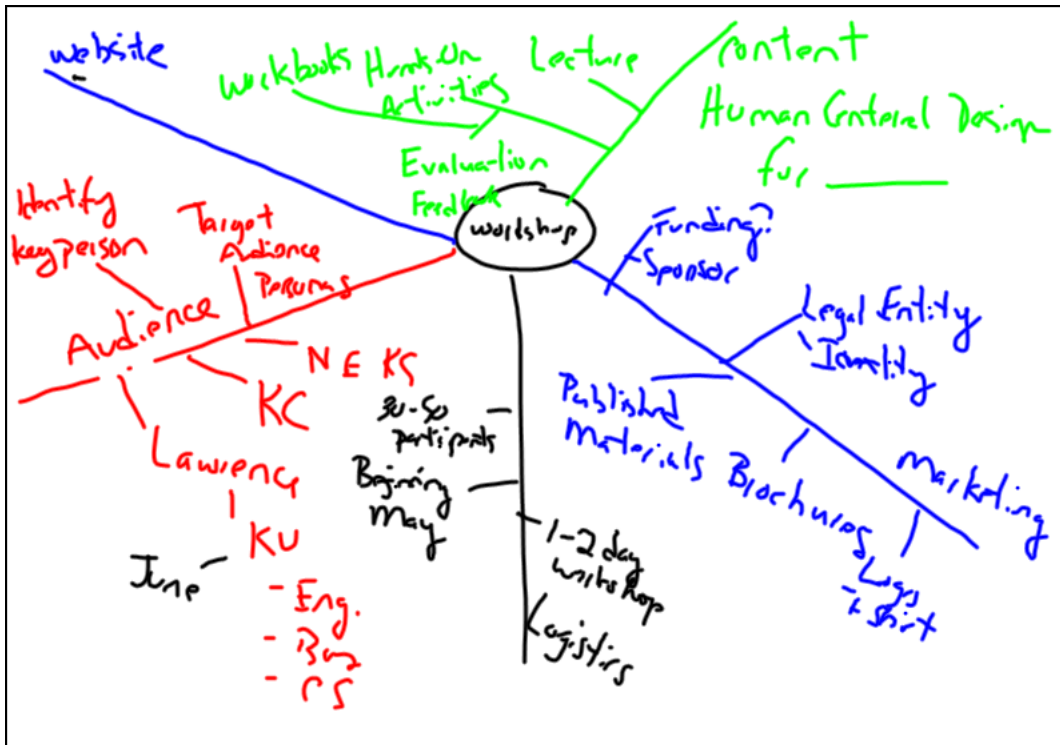 website
Workbooks
Hands-On
Activities
Lecture
Content
Human Centered Design
for
Evaluation
Feedback
workshop
Identify
key person
Target
Audience
Personas
Audience
NE KS
KC
Lawrence
KU
June
- Eng.
- Bus
- CS
30-50
participants
Beginning
May
1-2 day
workshop
Logistics
Funding?
- Sponsor
Legal Entity
Published
Materials
Brochures
Marketing
Logos
- T shirt